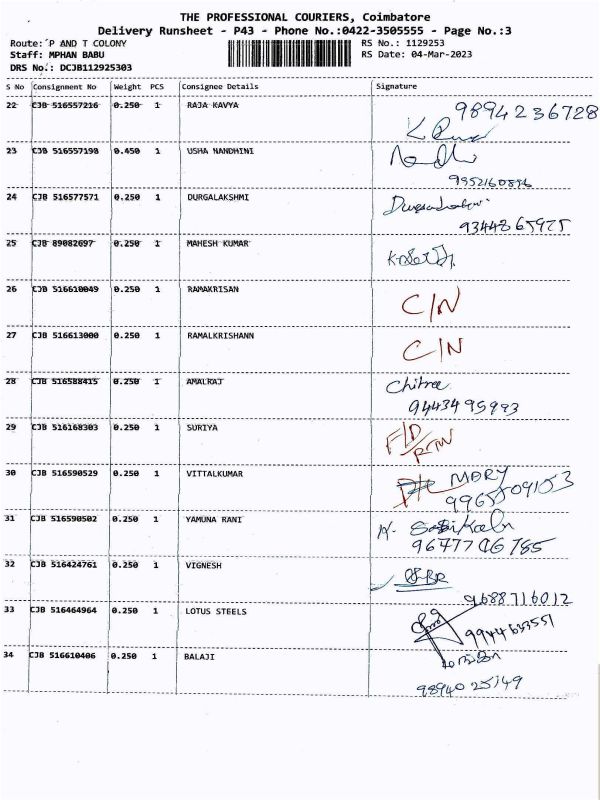 THE PROFESSIONAL COURIERS, Coimbatore
Delivery Runsheet - P43 - Phone No.:0422-3505555 - Page No.:3
Route: P AND T COLONY RS No.: 1129253
Staff: MPHAN BABU RS Date: 04-Mar-2023
DRS No.: DCJB112925303
S No Consignment No Weight PCS Consignee Details Signature
22 CJB 516557216 0.250 1 RAJA KAVYA 9894236728
23 CJB 516557198 0.450 1 USHA NANDHINI
9952160896
24 CJB 516577571 0.250 1 DURGALAKSHMI
9344865975
25 CJB 89082697 0.250 1 MAHESH KUMAR
26 CJB 516610049 0.250 1 RAMAKRISAN C/N
27 CJB 516613000 0.250 1 RAMALKRISHANN C/N
28 CJB 516588415 0.250 1 AMALRAJ Chitra
9443495993
29 CJB 516168303 0.250 1 SURIYA F/D
RTN
30 CJB 516590529 0.250 1 VITTALKUMAR MARY
31 CJB 516590502 0.250 1 YAMUNA RANI
32 CJB 516424761 0.250 1 VIGNESH
9688716012
33 CJB 516464964 0.250 1 LOTUS STEELS
9944633551
34 CJB 516610406 0.250 1 BALAJI
9894025149